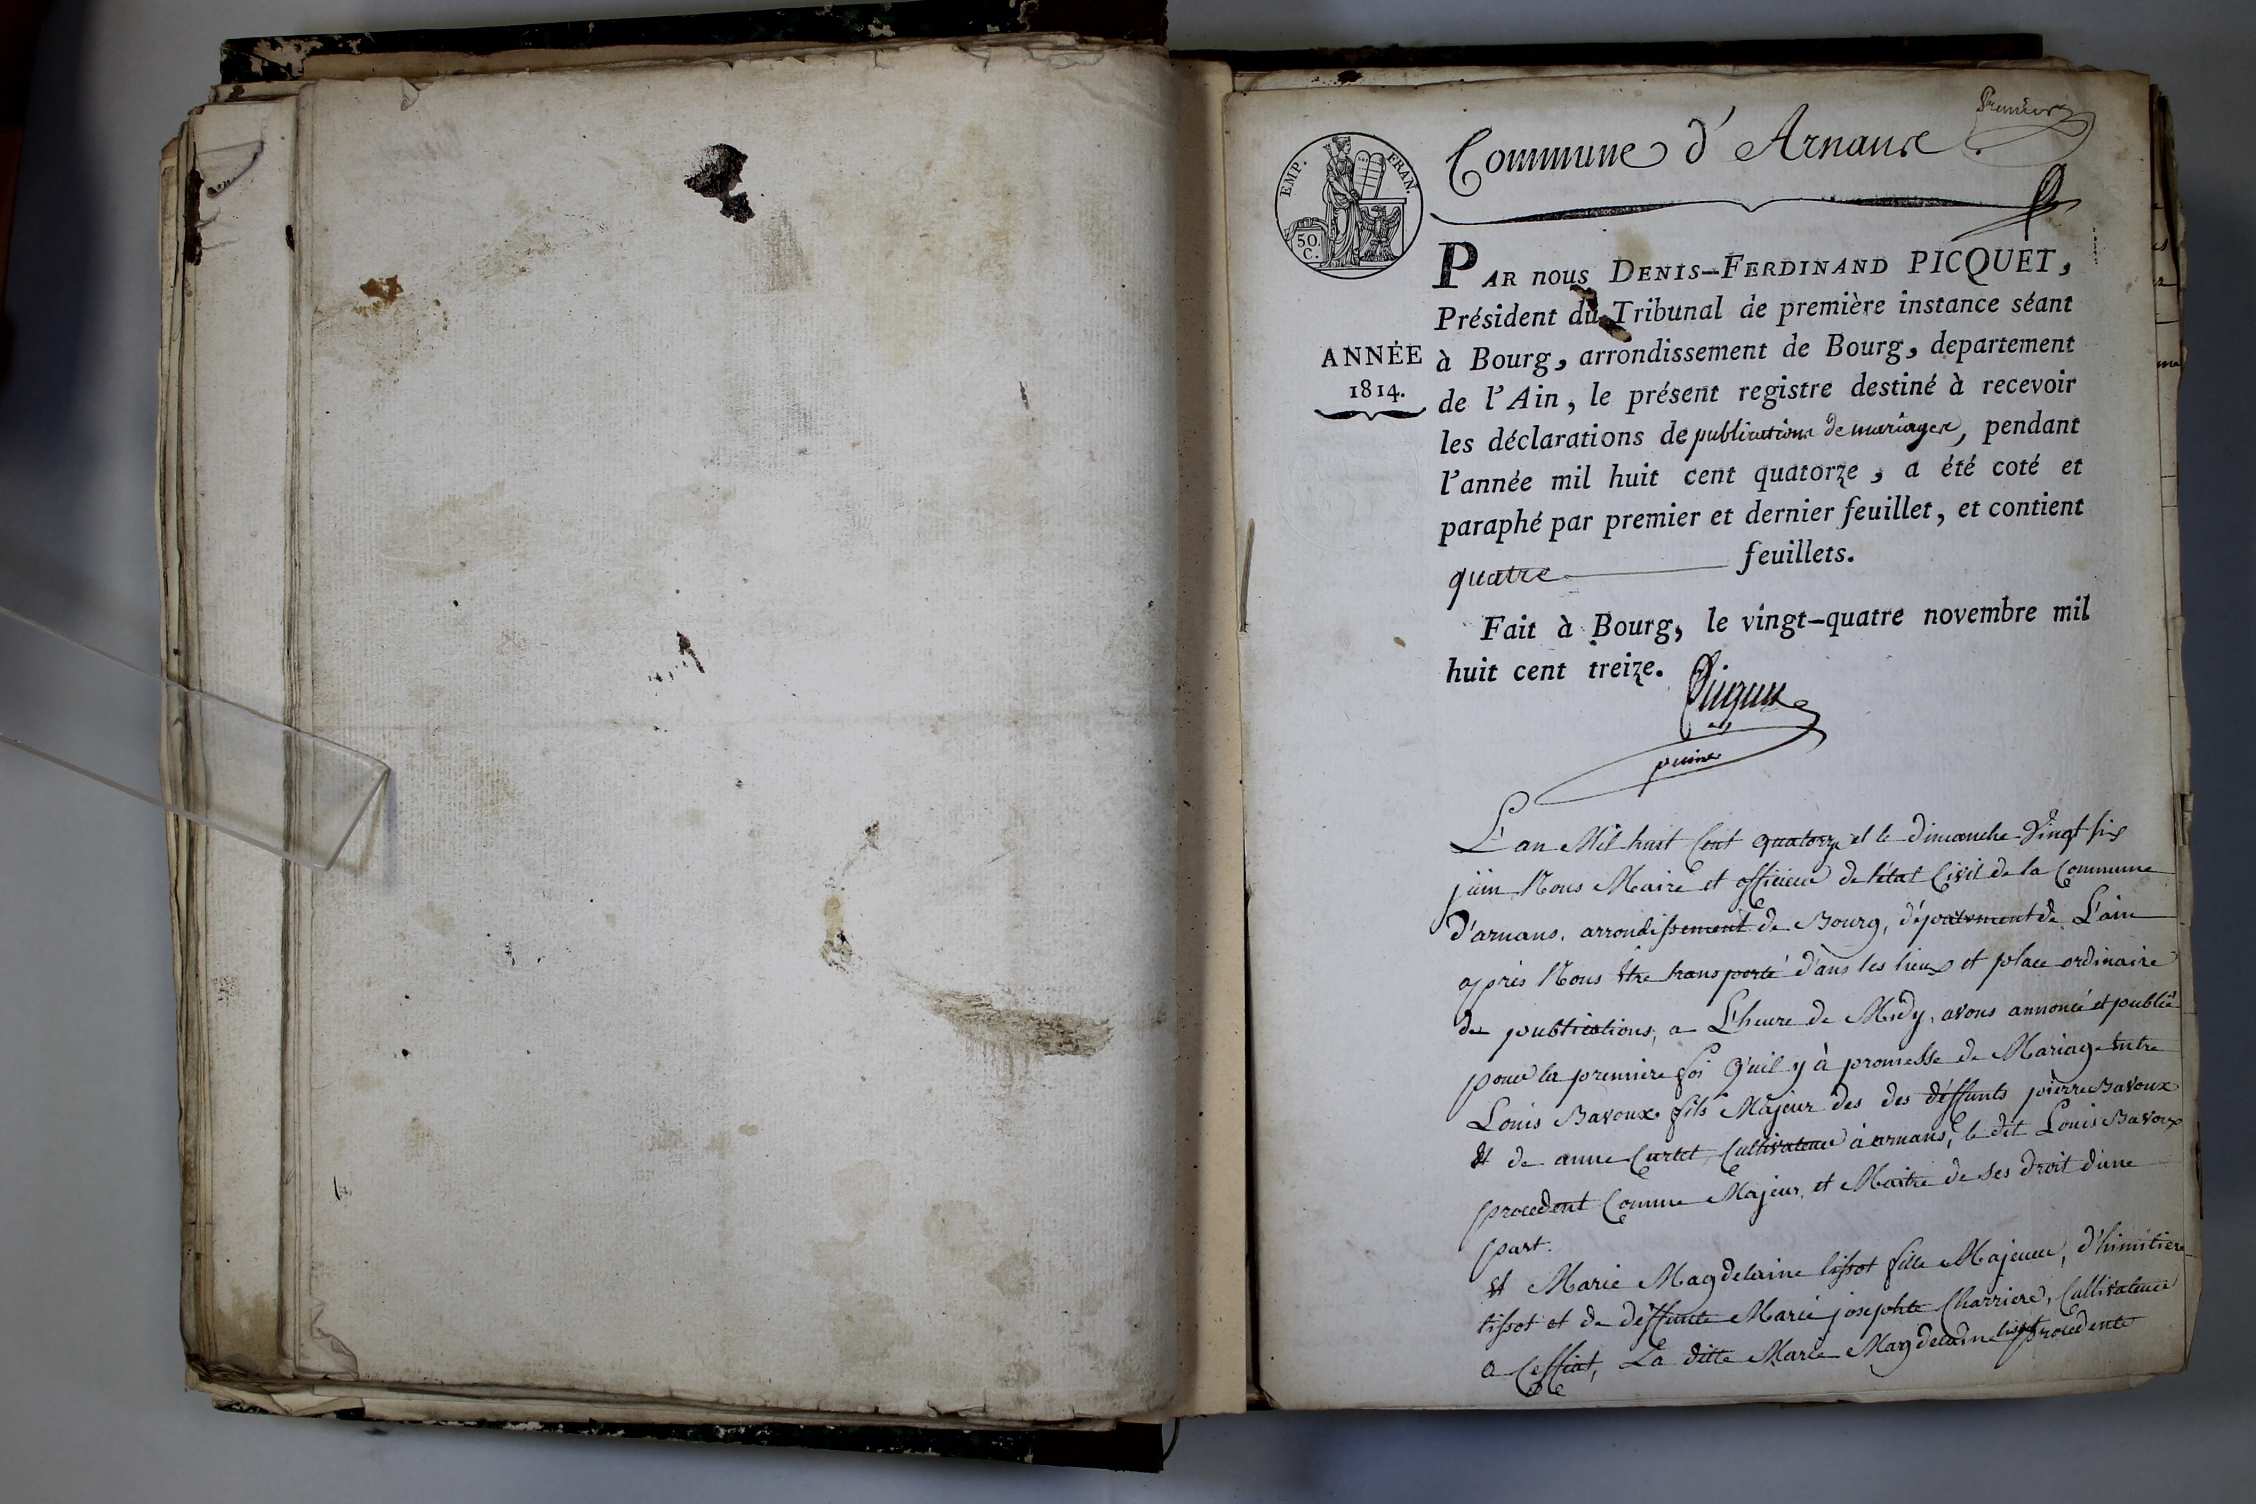 Premier
Commune d'Arnans
EMP. FRAN.
50.
C.
PAR nous DENIS-FERDINAND PICQUET,
Président du Tribunal de première instance séant
ANNÉE
1814.
à Bourg, arrondissement de Bourg, departement
de l'Ain, le présent registre destiné à recevoir
les déclarations de publications de mariages, pendant
l'année mil huit cent quatorze, a été coté et
paraphé par premier et dernier feuillet, et contient
quatre feuillets.
Fait à Bourg, le vingt-quatre novembre mil
huit cent treize.
Picquet
L'an Mil huit Cent quatorze et le dimanche Vingt six
juin Nous Maire et officier de l'état Civil de la Commune
d'arnans, arrondissement de Bourg, département de L'ain
après Nous être transporté dans les lieux et place ordinaire
de publications, a L'heure de Midy, avons annoncé et publié
pour la première foi Qu'il y à promesse de Mariage entre
Louis Bavoux fils Majeur des des déffunts pierre Bavoux
et de anne Curtet Cultivateur à arnans, le dit Louis Bavoux
procedent Comme Majeur, et Maitre de ses droit d'une
part.
et Marie Magdelaine tissot fille Majeure, d'himitiere
tissot et de deffunte Marie josephte Charriere, Cultivateur
a Ceffiat, La ditte Marie Magdelaine tissot procedente